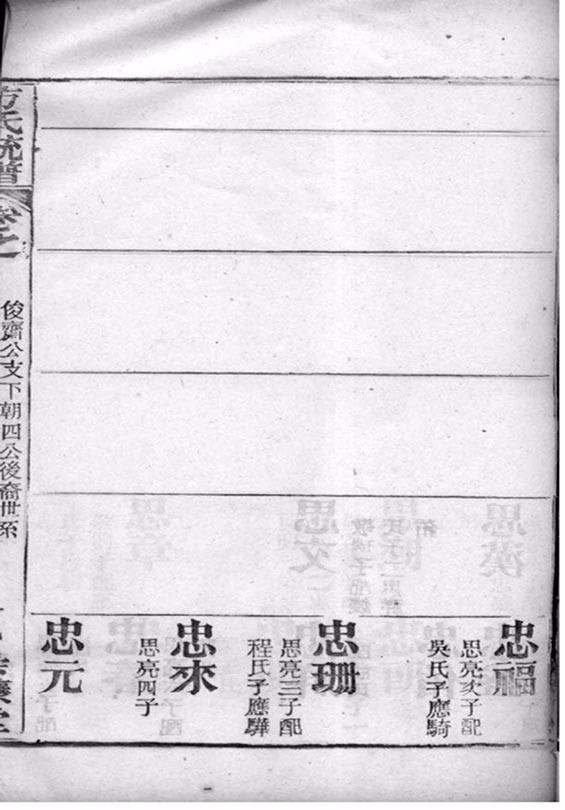 忠福
思亮次子配
吳氏子應騎
忠珊
思亮三子配
程氏子應驊
忠來
思亮四子
忠元
方氏統譜
卷之
俊齋公支下朝四公後裔世系